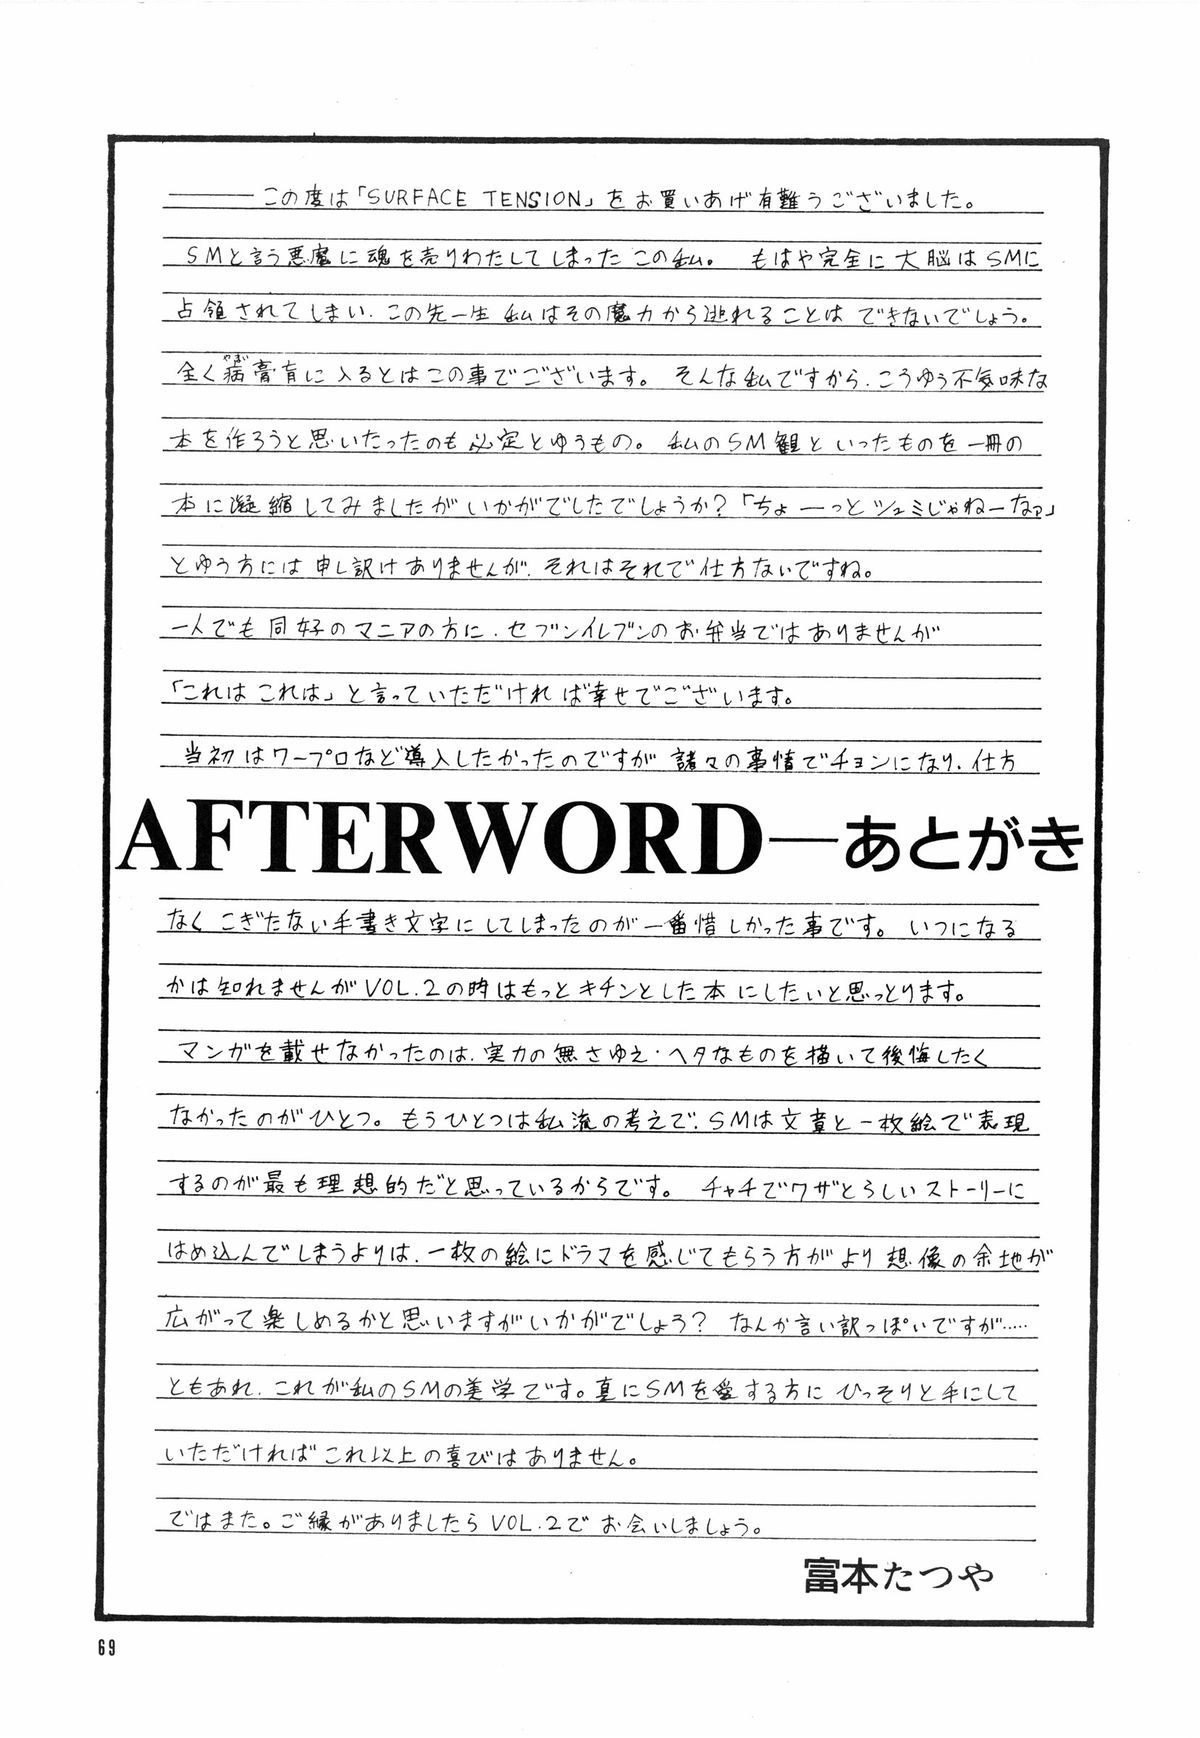 ――この度は「SURFACE TENSION」をお買いあげ有難うございました。
SMと言う悪魔に魂を売りわたしてしまったこの私。 もはや完全に大脳はSMに
占領されてしまい、この先一生 私はその魔力から逃れることは できないでしょう。
全く病膏肓に入るとはこの事でございます。 そんな私ですから、こうゆう不気味な
本を作ろうと思いたったのも必定とゆうもの。 私のSM観といったものを一冊の
本に凝縮してみましたがいかがでしたでしょうか?「ちょーっとシュミじゃねーなァ」
とゆう方には申し訳けありませんが、それはそれで仕方ないですね。
一人でも同好のマニアの方に、セブンイレブンのお弁当ではありませんが
「これは これは」と言っていただければ幸せでございます。
当初はワープロなど導入したかったのですが 諸々の事情でチョンになり、仕方
AFTERWORD―あとがき
なくこぎたない手書き文字にしてしまったのが一番惜しかった事です。 いつになる
かは知れませんがVOL.2の時はもっとキチンとした本にしたいと思っとります。
マンガを載せなかったのは、実力の無さゆえ・ヘタなものを描いて後悔したく
なかったのがひとつ。もうひとつは私流の考えで、SMは文章と一枚絵で表現
するのが最も理想的だと思っているからです。 チャチでワザとらしいストーリーに
はめ込んでしまうよりは、一枚の絵にドラマを感じてもらう方がより想像の余地が
広がって楽しめるかと思いますがいかがでしょう? なんか言い訳っぽいですが……
ともあれ、これが私のSMの美学です。真にSMを愛する方に ひっそりと手にして
いただければこれ以上の喜びはありません。
ではまた。ご縁がありましたらVOL.2でお会いしましょう。
富本たつや
69